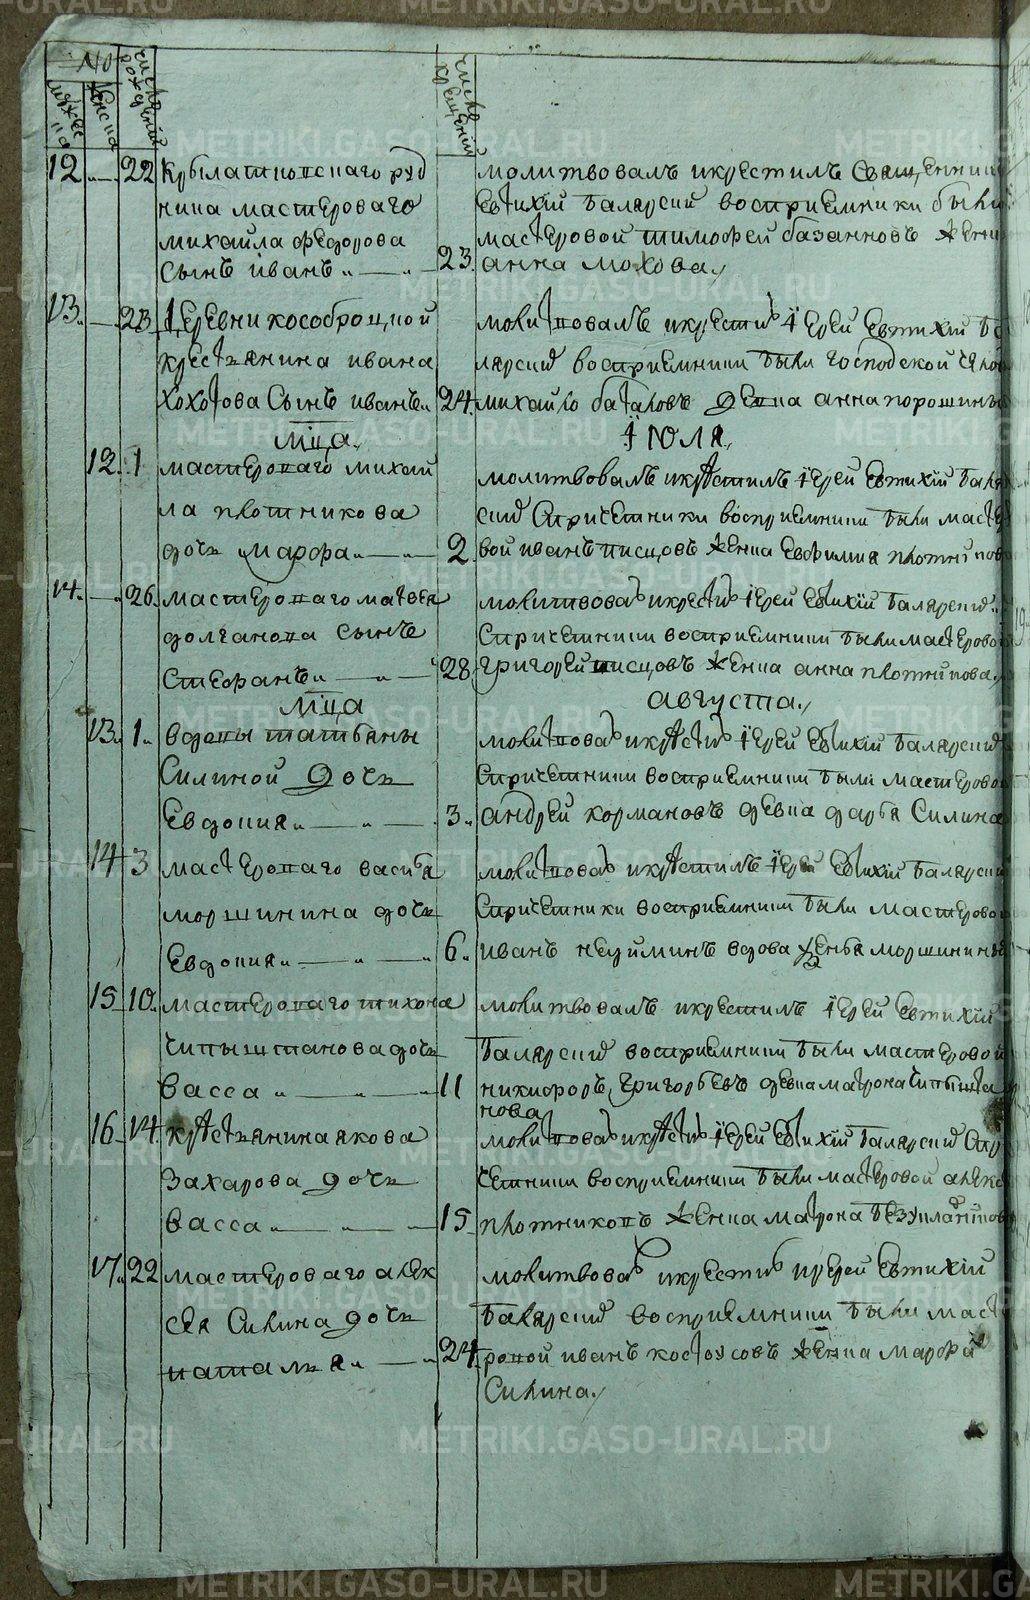 №
мужеска
женска
число рождений
число крещений
12 22 Крылатовскаго руд
ника мастероваго
михаила федорова
сынъ иванъ 23
молитвовалъ икрестилъ Священник
Евтихiй Балярсий восприемники были
мастеровой тимофеи базанковъ женка
анна мохова
13 23 Деревни кособроцкой
крестьянина ивана
Хохотова Сынъ иванъ 24
молитвовалъ икрестилъ Iерей Евтихiй Ба
лярсий восприемники были господской
михайло баталовъ девка анна порошины
мца Iюля
12 1 мастероваго михай
ла плотникова
дочь марфа 2
молитвовалъ икрестилъ Iерей Евтихiй Баляр
сий Спричетники восприемники были масте
вой иванъ писцовъ женка Евфимия плотников
14 26 мастероваго матвея
долганова сынъ
Стефанъ 28
молитвовалъ икрестилъ Iерей Евтихiй Балярсий
Спричетники восприемники были мастерово
григорей писцовъ женка анна плотникова
мца августа
13 1 вдовы татьяны
Силиной дочь
Евдокия 3
молитвовалъ икрестилъ Iерей Евтихiй Балярсий
Спричетники восприемники были мастерово
андрей кормановъ девка дарья Силина
14 3 мастероваго василья
моршинина дочь
Евдокия 6
молитвовалъ икрестилъ Iерей Евтихiй Балярсий
Спричетники восприемники были мастерово
иванъ неуйминъ вдова моршинины
15 10 мастероваго тихона
чипыштанова дочь
васса 11
молитвовалъ икрестилъ Iерей Евтихiй
Балярсий восприемники были мастеровой
никифоръ григорьевъ девка матрона чипышта
нова
16 14 крестьянина якова
Захарова дочь
васса 15
молитвовалъ икрестилъ Iерей Евтихiй Балярсий Спри
четники восприемники были мастеровой алекс
плотниковъ женка матрона
17 22 мастероваго алек
сея Силина дочь
наталья 24
молитвовалъ икрестилъ иерей Евтихiй
Балярсий восприемники были масте
ровой иванъ костоусовъ женка марфа
Силина
METRIKI.GASO-URAL.RU